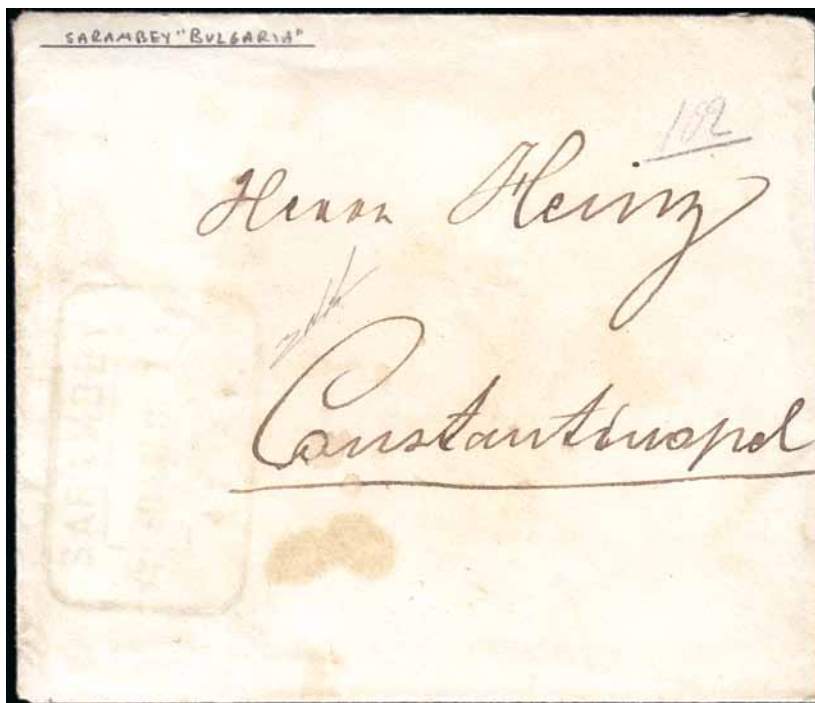 SARAMBEY "BULGARIA"
102
Herrn Heinz
Constantinopel
SARAMBEY